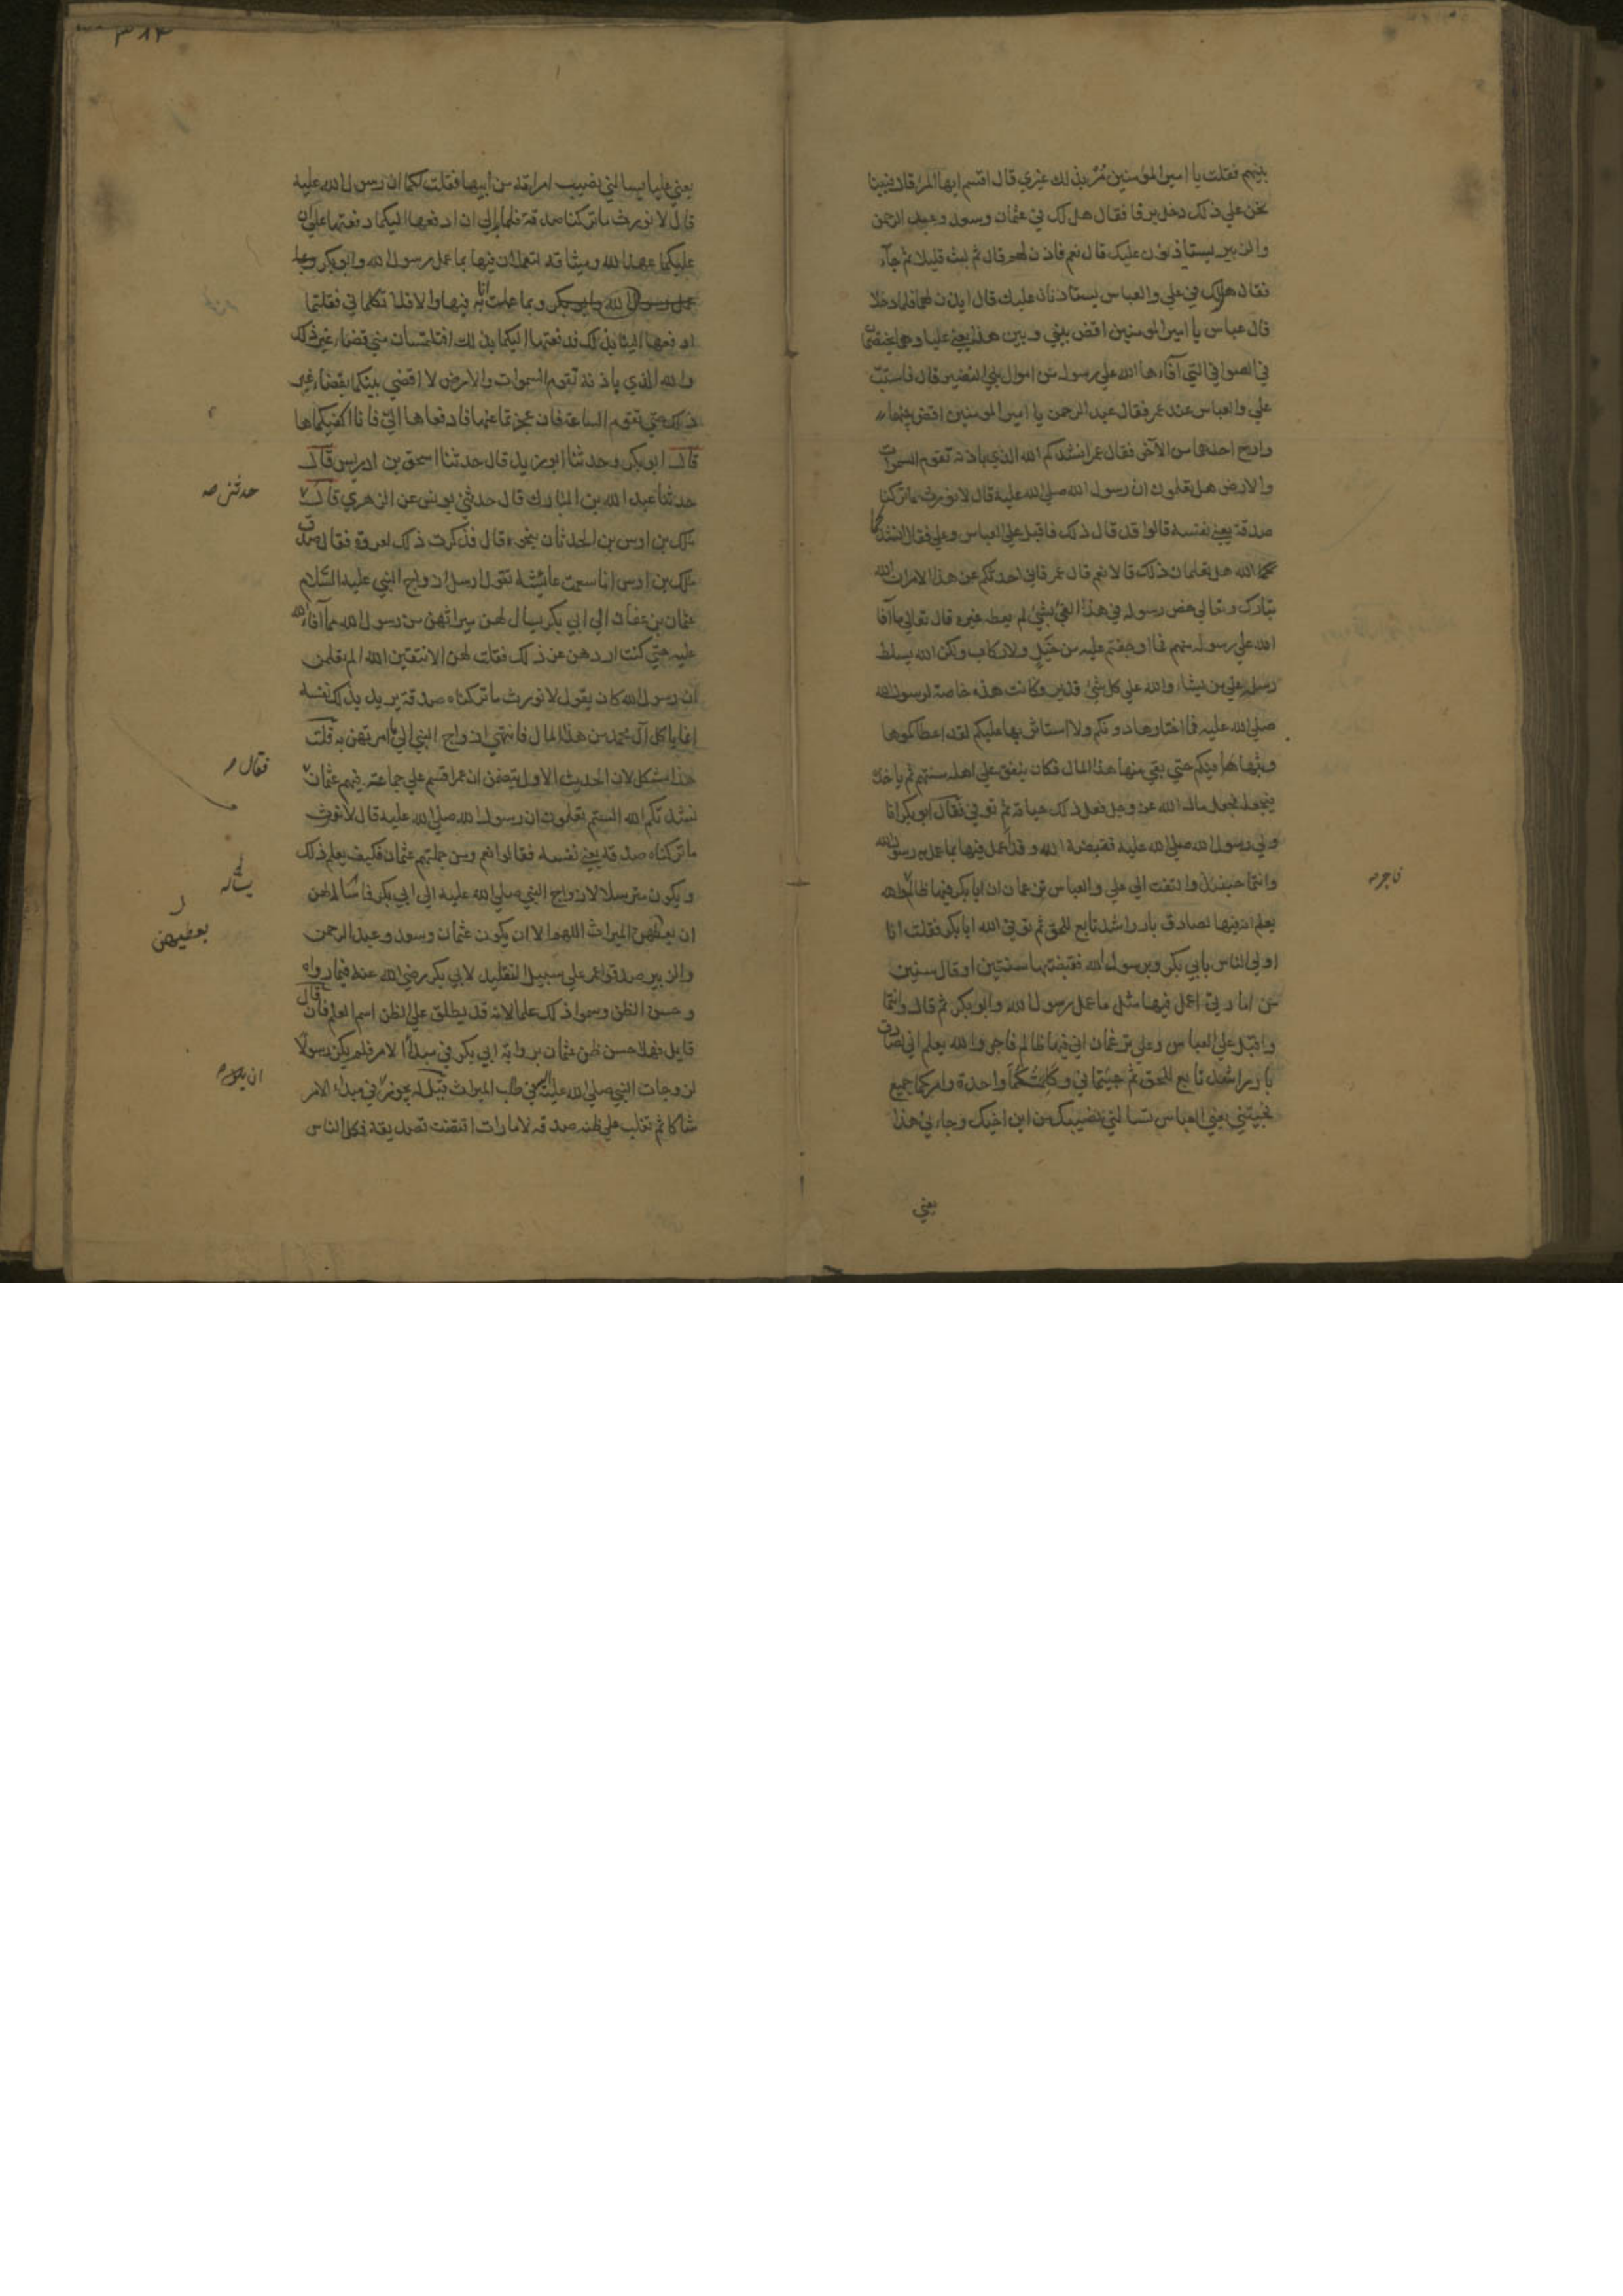 بينهم فقلت يا امير المؤمنين مُرْ بذلك غيري قال اقسم ايها المرء قال فبينا
نحن علي ذلك دخل يرفا فقال هل لك في عثمان وسعد وعبد الرحمن
والزبير يستاذنون عليك قال نعم فاذن لهم قال ثم لبث قليلا ثم جآء
فقال هل لك في علي والعباس يستاذنان عليك قال ايذن لهما فلما دخلا
قال عباس يا امير المومنين اقض بيني وبين هذا يعني عليا وهما يختصمان
في الصوافي التي آفاءها الله علي رسوله من اموال بني النضير قال فاستبّ
علي والعباس عند عمر فقال عبد الرحمن يا امير المومنين اقض بينهما
وارح احدهما من الآخر فقال عمر انشدكم الله الذي باذنه تقوم السموات
والارض هل تعلمون ان رسول الله صلي الله عليه قال لا نورث ما تركنا
صدقة يعني نفسه قالوا قد قال ذلك فاقبل علي العباس وعلي فقال انشدكما
الله هل تعلمان ذلك قالا نعم قال عمر فاني احدثكم عن هذا الامر ان الله
تبارك وتعالي خص رسوله في هذا الفي بشيء لم يعطه غيره قال تعالي ما آفا
الله علي رسوله منهم فما اوجفتم عليه من خَيْلٍ ولا ركاب ولكن الله يسلط
رسله علي من يشاء والله علي كل شيء قدير وكانت هذه خاصة لرسول الله
صلي الله عليه فما اختارها دونكم ولا استاثر بها عليكم لقد اعطاكموها
وبثها فيكم حتي بقي منها هذا المال فكان ينفق علي اهله سنتهم ثم ياخذ
فيجعله مجعل مال الله عز وجل فعل ذلك حياته ثم توفي فقال ابو بكر انا
ولي رسول الله صلي الله عليه فقبضه الله وقد عمل فيها بما عمل به رسول الله
وانتما حينئذ والتفت الي علي والعباس تزعمان ان ابا بكر فيها ظالم والله
فاجر صه
يعلم انه فيها لصادق بار راشد تابع للحق ثم توفي الله ابا بكر فقلت انا
اولي الناس بابي بكر وبرسول الله فقبضتها سنتين او قال سنين
من امارتي اعمل فيها مثل ما عمل رسول الله وابو بكر ثم قال وانتما
واقبل علي العباس وعلي تزعمان اني فيها ظالم فاجر والله يعلم اني لصادق
بار راشد تابع للحق ثم جيتماني وكَلِمَتُكُما واحدة وامركما جميع
فجيتني يعني العباس تسالني نصيبك من ابن اخيك وجاءني هذا
يعني
٣٨٣
يعني عليا يسالني نصيب امراته من ابيها فقلت لكما ان رسول الله عليه
قال لا نورث ما تركنا صدقة فلما بدا لي ان ادفعها اليكما دفعتها علي ان
عليكما عهد الله وميثاقه لتعملان فيها بما عمل رسول الله وابو بكر وبما
عمل رسول الله وابو بكر وبما عملت انا به فيها والا فلا تكلماني فقلتما
ادفعها الينا بذلك فدفعتها اليكما بذلك افتلتمسان مني قضاء غير ذلك
والله الذي باذنه تقوم السموات والارض لا اقضي بينكما بقضاء غير
ذلك حتي تقوم الساعة فان عجزتما عنها فادفعاها اليّ فانا اكفيكماها
قال ابو بكر وحدثنا ابو زيد قال حدثنا اسحق بن ادريس قال
حدثنا عبد الله بن المبارك قال حدثني يونس عن الزهري قال
حدثني صه
ملك بن اوس بن الحدثان بنحوه قال فذكرت ذلك لعروة فقال صدق
ملك بن اوس انا سمعت عائشة تقول ارسل ازواج النبي عليه السلام
عثمان بن عفان الي ابي بكر يسال لهن ميراثهن من رسول الله مما آفاء الله
عليه حتي كنت اردهن عن ذلك فقلت لهن الا تتقين الله الم تعلمن
ان رسول الله كان يقول لا نورث ما تركناه صدقة يريد بذلك نفسه
انما ياكل آل محمد من هذا المال فانتهي ازواج النبي الي ما امرتهن به قلت
هذا مشكل لان الحديث الاول يتضمن ان عمر اقسم علي جماعة فيهم عثمان
فقال
نشدتكم الله الستم تعلمون ان رسول الله صلي الله عليه قال لا نورث
ما تركناه صدقة يعني نفسه فقالوا نعم ومن جملتهم عثمان فكيف يعلم ذلك
ويكون مترسلا لازواج النبي صلي الله عليه الي ابي بكر فاسأله لهن
يسأله
ان يعطهن الميراث اللهم الا ان يكون عثمان وسعد وعبد الرحمن
يعطيهن
والزبير صدقوا عمر علي سبيل التقليد لابي بكر رضي الله عنه فيما رواه
وحسن الظن وسموا ذلك علما لانه قد يطلق علي الظن اسم العلم فان قال
قايل فهلا حسن ظن عثمان برواية ابي بكر في مبدأ الامر فلم يكن رسولا
لزوجات النبي صلي الله عليه في طلب الميراث قيل له يجوز في مبداء الامر
ان يكون
شاكا ثم تغلب علي ظنه صدقه لامارات اقتضت تصديقه فكل الناس